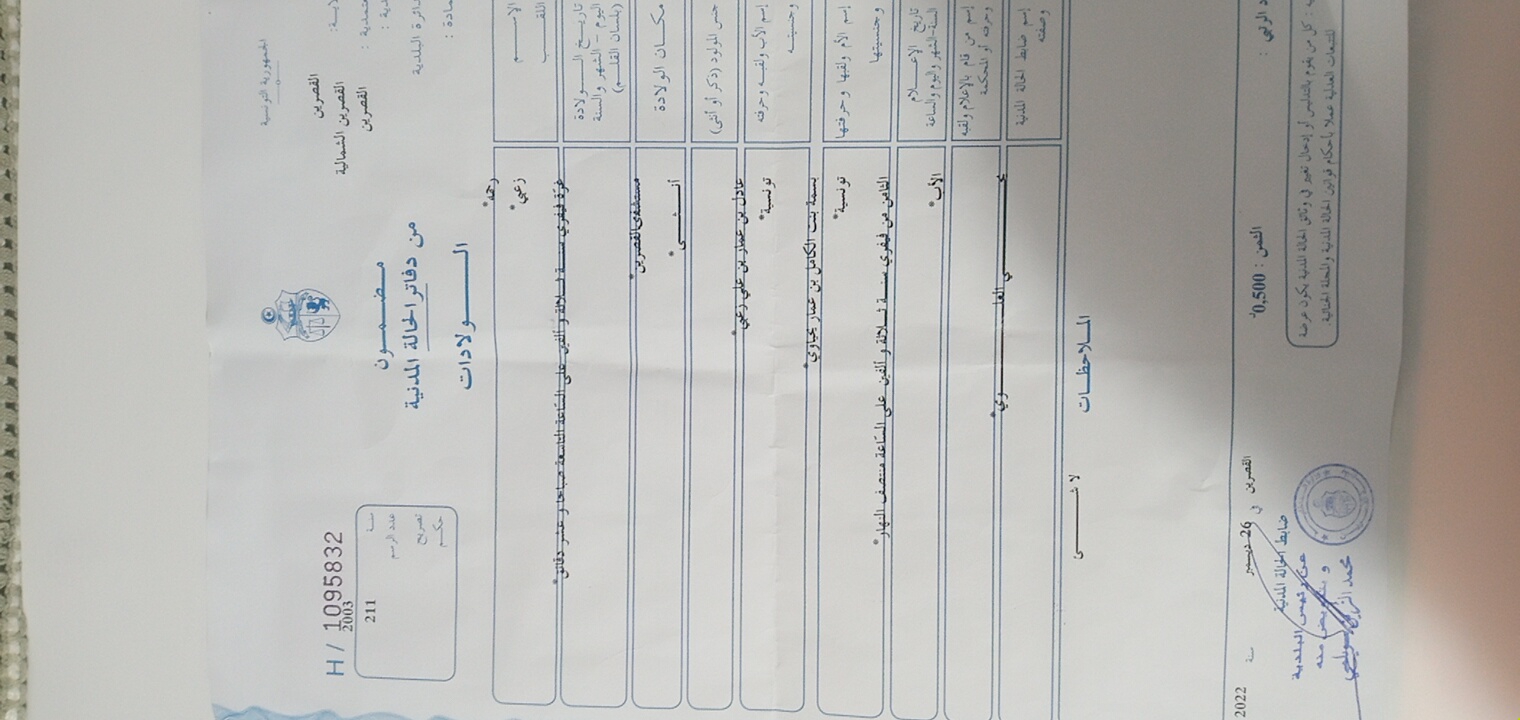 الجمهورية التونسية
القصرين
القصرين الشمالية
القصرين
دائرة البلدية
مضمون
من دفاتر الحالة المدنية
الولادات
H / 1095832
سنة 2003
عدد الرسم 211
تصريح
حكم
الاسم
*رحمه
اللقب
*زعبي
تاريخ الولادة
اليوم - الشهر والسنة
(بلسان القلم)
غرّة فيفري سنة ثلاثة و ألفين على الساعة التاسعة صباحا و عشر دقائق*
مكان الولادة
مستشفى القصرين*
جنس المولود (ذكر أو أنثى)
أنثى*
إسم الأب ولقبه وحرفته
عادل بن عمار بن علي زعبي*
وجنسيته
تونسية*
إسم الأم ولقبها وحرفتها
بسمة بنت الكامل بن عمار يحياوي*
وجنسيتها
تونسية*
تاريخ الإعلام
السنة-الشهر واليوم والساعة
الثامن من فيفري سنة ثلاثة و ألفين على الساعة منتصف النهار*
إسم من قام بالإعلام ولقبه
وحرفته أو المحكمة
الأب*
إسم ضابط الحالة المدنية
وصفته
الملاحظات
لا شيء
القصرين في 26 ديسمبر سنة 2022
ضابط الحالة المدنية
عن رئيس البلدية
و بتفويض منه
الثمن : 0,500
كل من يقوم بالتدليس أو إدخال تغيير في وثائق الحالة المدنية يكون عرضة
للتتبعات العدلية عملا بأحكام قوانين الحالة المدنية والمجلة الجنائية